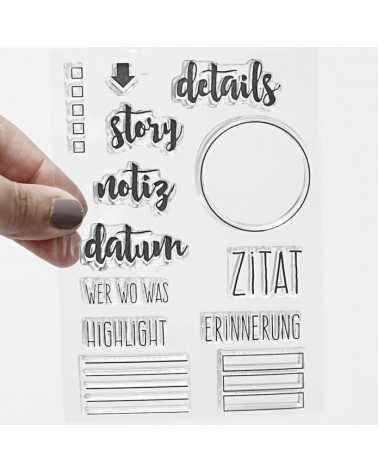 details
story
notiz
datum
ZiTAT
WER WO WAS
HiGHLiGHT
ERiNNERUNG